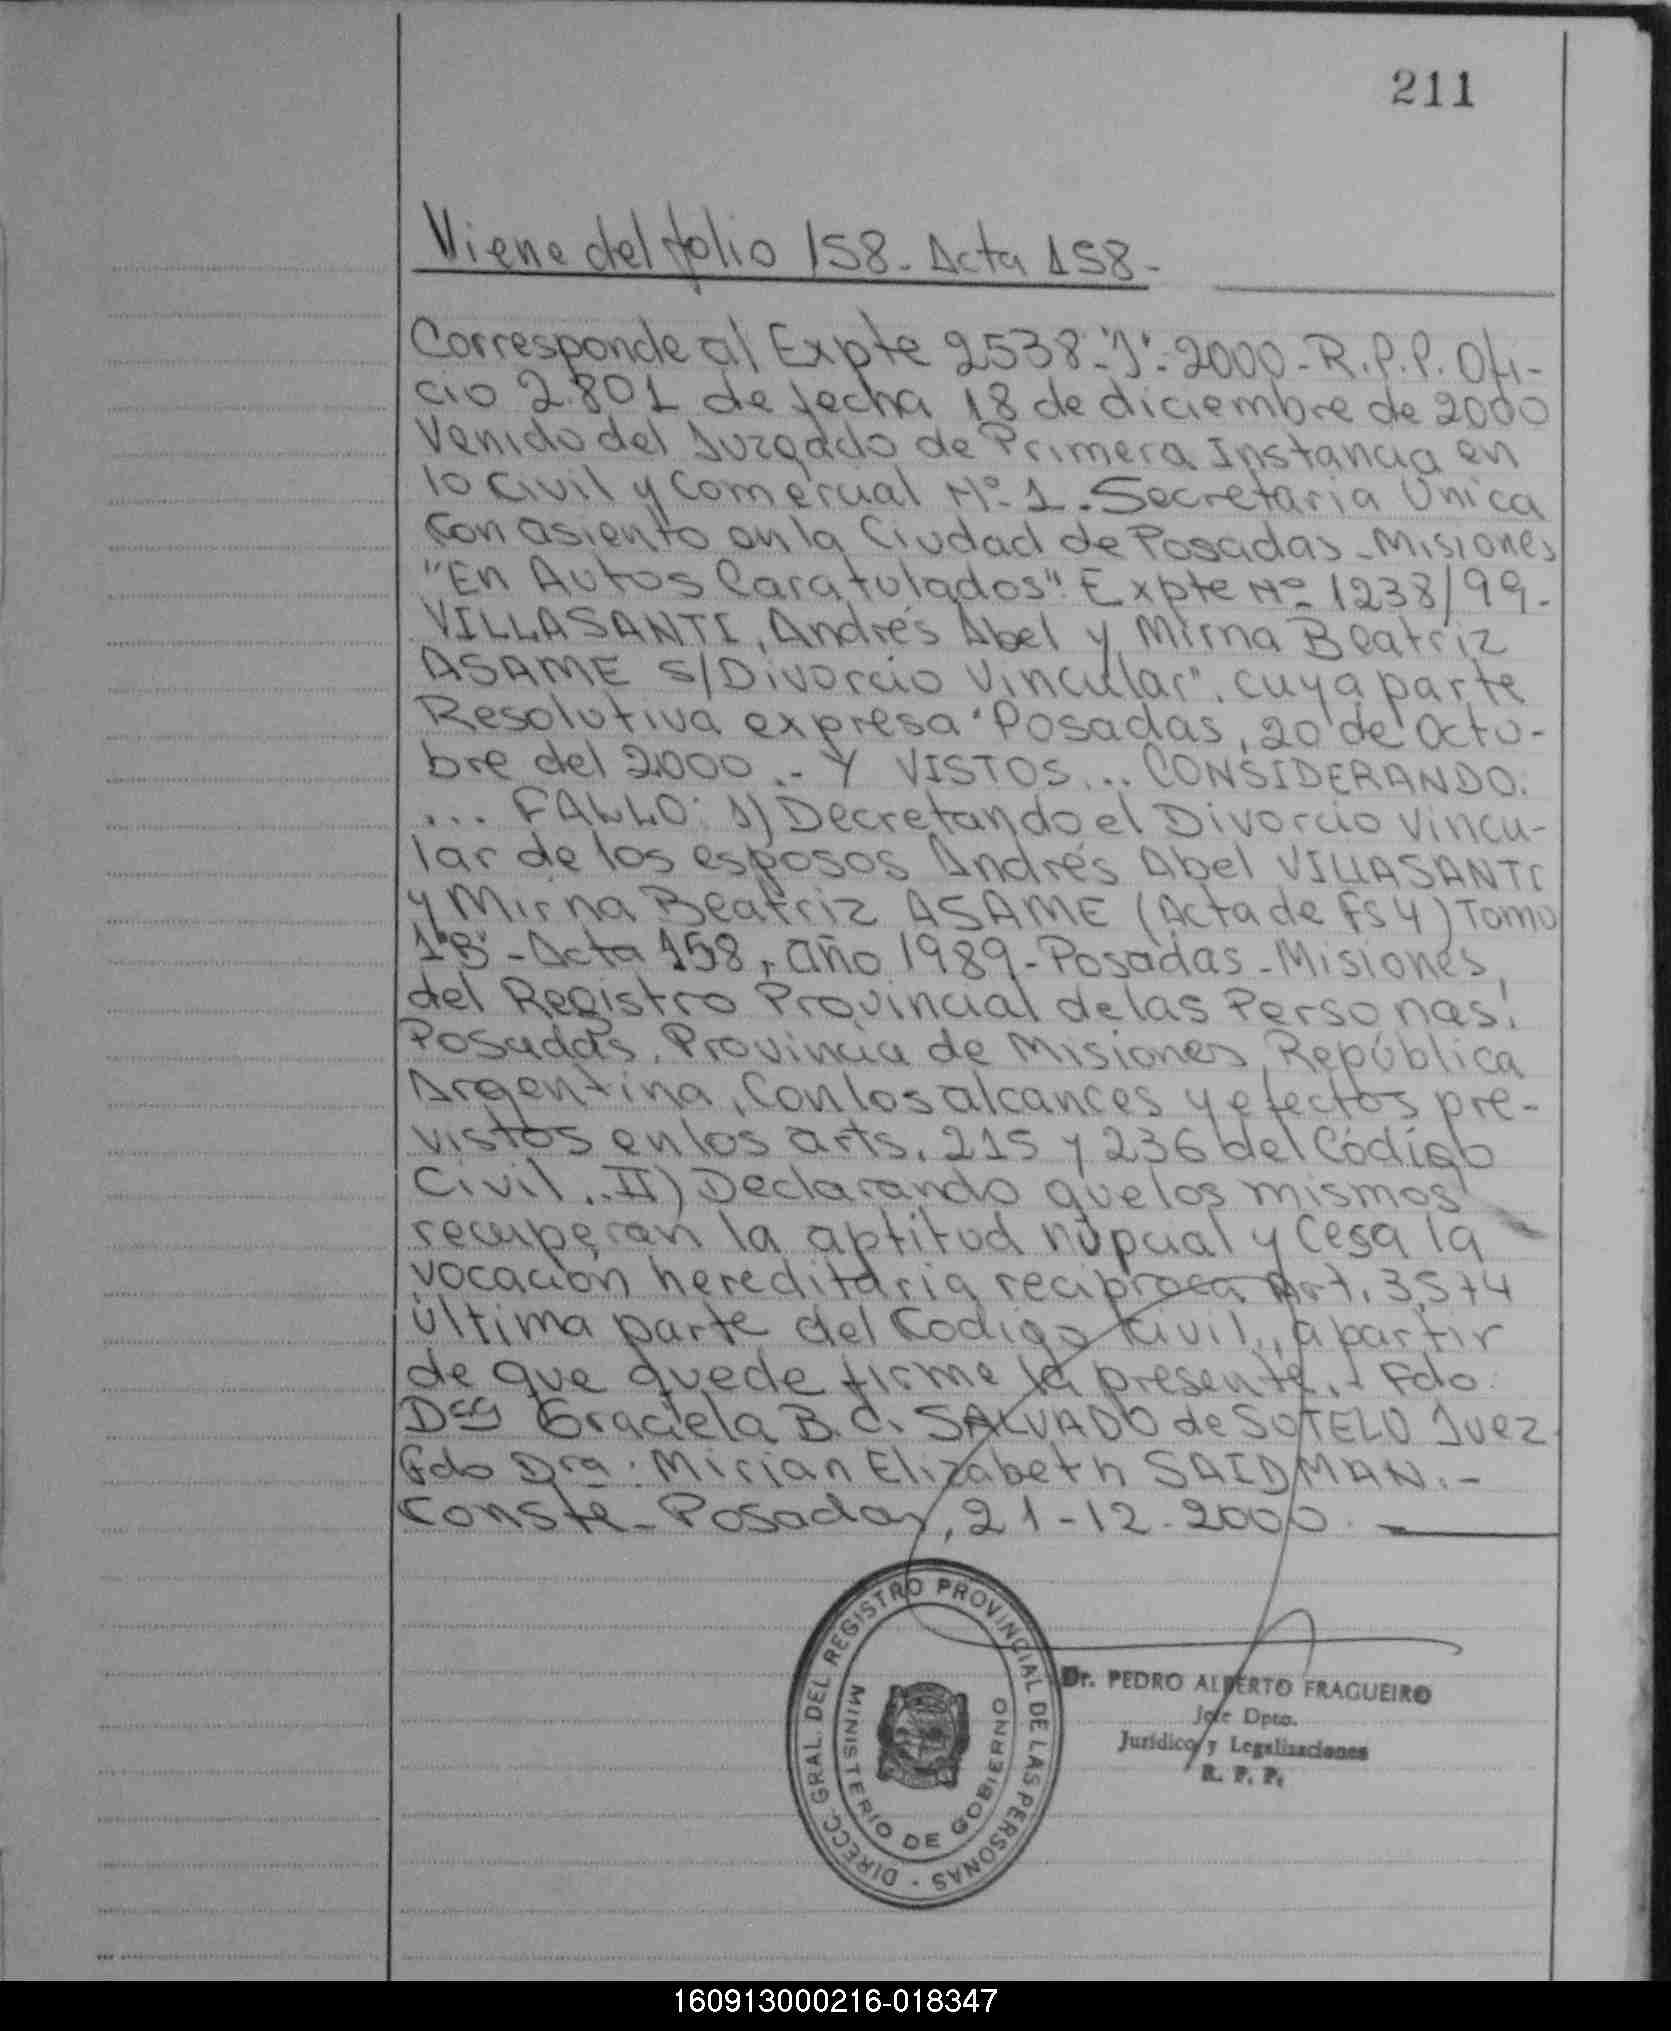 211
Viene del folio 158. Acta 158-
Corresponde al Expte 2538-"J"-2000-R.P.P. Ofi-
cio 2.801 de fecha 18 de diciembre de 2000
Venido del Juzgado de Primera Instancia en
lo Civil y Comercial Nº 1. Secretaria Unica
con asiento en la Ciudad de Posadas-Misiones
"En Autos Caratulados" Expte Nº 1238/99-
VILLASANTI, Andrés Abel y Mirna Beatriz
ASAME s/Divorcio Vincular", cuya parte
Resolutiva expresa "Posadas, 20 de Octu-
bre del 2000.- Y VISTOS... CONSIDERANDO.
... FALLO: 1) Decretando el Divorcio Vincu-
lar de los esposos Andrés Abel VILLASANTI
y Mirna Beatriz ASAME (Acta de fs 4) Tomo
1"B"-Acta 158, año 1989-Posadas-Misiones,
del Registro Provincial de las Personas.
Posadas, Provincia de Misiones, República
Argentina, Con los alcances y efectos pre-
vistos en los arts. 215 y 236 del Código
Civil.. II) Declarando que los mismos
recuperan la aptitud nupcial y Cesa la
vocación hereditaria reciproca Art. 3.574
última parte del Codigo Civil., a partir
de que quede firme la presente.- Fdo.
Dra Graciela B.C. SALVADO de SOTELO Juez
Fdo Dra. Mirian Elizabeth SAIDMAN.-
Conste- Posadas, 21-12-2000.
DIRECC. GRAL. DEL REGISTRO PROVINCIAL DE LAS PERSONAS -
MINISTERIO DE GOBIERNO
Dr. PEDRO ALBERTO FRAGUEIRO
Jefe Dpto.
Jurídico y Legalizaciones
R. P. P.
160913000216-018347